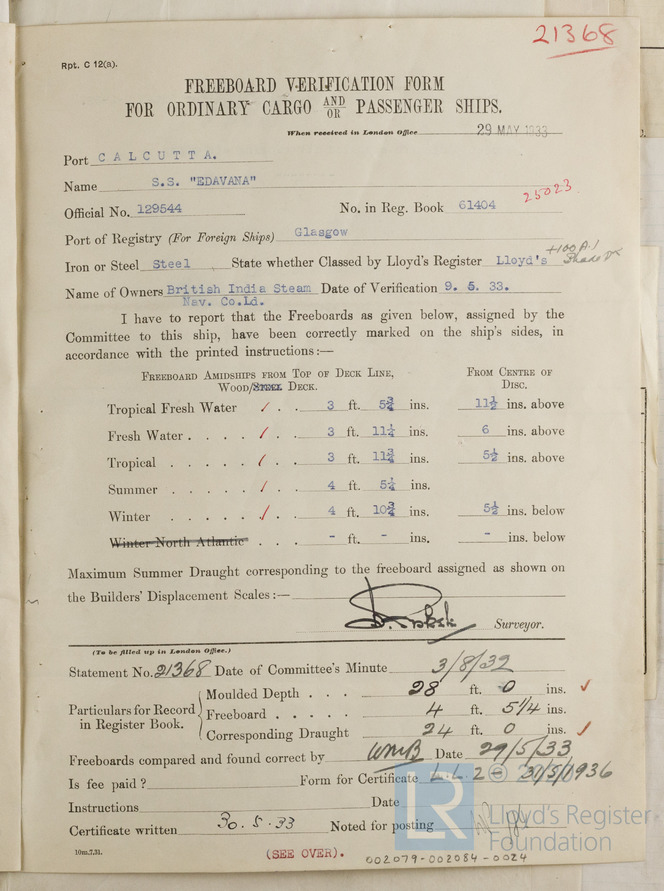 21368
Rpt. C 12(a).
FREEBOARD VERIFICATION FORM
FOR ORDINARY CARGO AND/OR PASSENGER SHIPS.
When received in London Office 29 MAY 1933
Port CALCUTTA.
Name S.S. "EDAVANA"
25023
Official No. 129544 No. in Reg. Book 61404
Port of Registry (For Foreign Ships) Glasgow
Iron or Steel Steel State whether Classed by Lloyd's Register Lloyd's +100 A.1
Name of Owners British India Steam Date of Verification 9. 5. 33.
Nav. Co.Ld.
I have to report that the Freeboards as given below, assigned by the
Committee to this ship, have been correctly marked on the ship's sides, in
accordance with the printed instructions:—
FREEBOARD AMIDSHIPS FROM TOP OF DECK LINE, FROM CENTRE OF
WOOD/STEEL DECK. DISC.
Tropical Fresh Water ✓ . . 3 ft. 5¾ ins. 11½ ins. above
Fresh Water . . . . ✓ . . 3 ft. 11¼ ins. 6 ins. above
Tropical . . . . . ✓ . . 3 ft. 11¾ ins. 5½ ins. above
Summer . . . . . ✓ . . 4 ft. 5¼ ins.
Winter . . . . . ✓ . . 4 ft. 10¾ ins. 5½ ins. below
Winter North Atlantic . . . - ft. - ins. - ins. below
Maximum Summer Draught corresponding to the freeboard assigned as shown on
the Builders' Displacement Scales :—
Surveyor.
(To be filled up in London Office.)
Statement No. 21368 Date of Committee's Minute 3/8/32
Particulars for Record in Register Book.
Moulded Depth . . . 28 ft. 0 ins. ✓
Freeboard . . . . . 4 ft. 5 1/4 ins.
Corresponding Draught 24 ft. 0 ins. ✓
Freeboards compared and found correct by WMB Date 29/5/33
Is fee paid ? Form for Certificate L.L.2 - 31/5/1936
Instructions Date
Certificate written 30.5.33 Noted for posting
10m,7,31.
(SEE OVER).
002079-002084-0024
LR
Lloyd's Register
Foundation